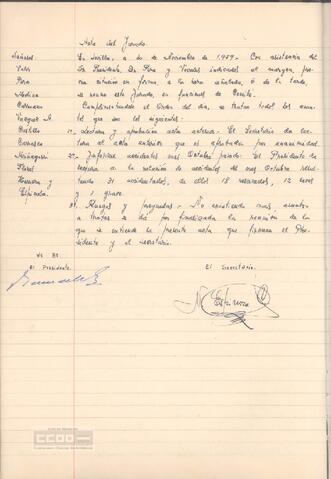 Acta del Jurado.
Señores: En Sevilla, a 20 de Noviembre de 1959. Con asistencia del
Sr. Presidente, y Vocales indicados al margen, pre-
Pero via citación en forma, a la hora señalada, 6 de la tarde,
Medina se reune este Jurado, en funciones de Comité.
Carmona Cumplimentando el Orden del día, se tratan todos los asun-
Vazquez tos que son los siguientes:
Castillo 1º. Lectura y aprobación acta anterior. El Secretario da lec-
Carrasco tura al acta anterior que es aprobada por unanimidad.
2º. Informe accidentes mes Octubre pasado. El Presidente da
Flores lectura a la relación de accidentes del mes Octubre, resul-
Herrera y tando 31 accidentados, de ellos 18 reservados, 12 leves
Espinosa. y 1 grave.
3º. Ruegos y preguntas.- No existiendo más asuntos
a tratar se da por finalizada la reunión de la
que se extiende la presente acta que firman el Pre-
sidente y el secretario.
Vº Bº
El Presidente. El Secretario.
Espinosa
CCOO